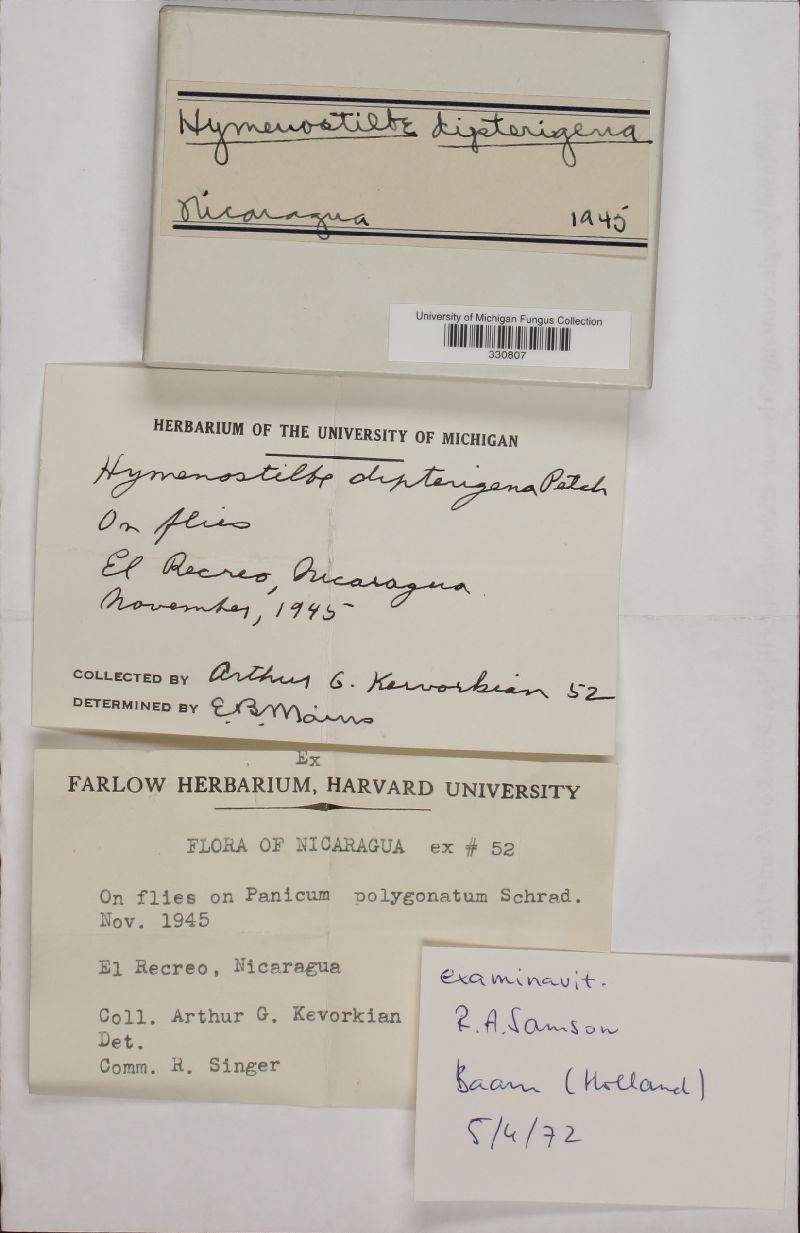 Hymenostilbe dipterigena
Nicaragua 1945
University of Michigan Fungus Collection
330807
HERBARIUM OF THE UNIVERSITY OF MICHIGAN
Hymenostilbe dipterigena Petch
On flies
El Recreo, Nicaragua
November, 1945
COLLECTED BY Arthur G. Kevorkian 52
DETERMINED BY E.B. Mains
Ex
FARLOW HERBARIUM, HARVARD UNIVERSITY
FLORA OF NICARAGUA ex # 52
On flies on Panicum polygonatum Schrad.
Nov. 1945
El Recreo, Nicaragua
Coll. Arthur G. Kevorkian
Det.
Comm. R. Singer
examinavit.
R.A. Samson
Baarn (Holland)
5/4/72